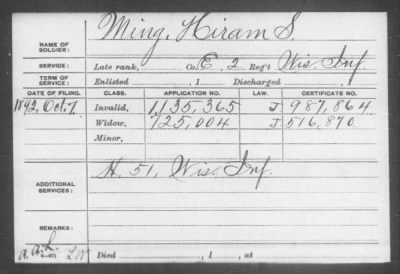 Ming, Hiram S.
NAME OF SOLDIER:
SERVICE: Late rank, Co. E, 2 Reg't Wis. Inf.
TERM OF SERVICE: Enlisted , 1 Discharged , 1
DATE OF FILING. CLASS. APPLICATION NO. LAW. CERTIFICATE NO.
1892, Oct. 7 Invalid, 1,135,365 J 987,864
Widow, 725,004 J 516,870
Minor,
H. 51, Wis. Inf.
ADDITIONAL SERVICES:
REMARKS:
a.a.L.
Died , 1 , at